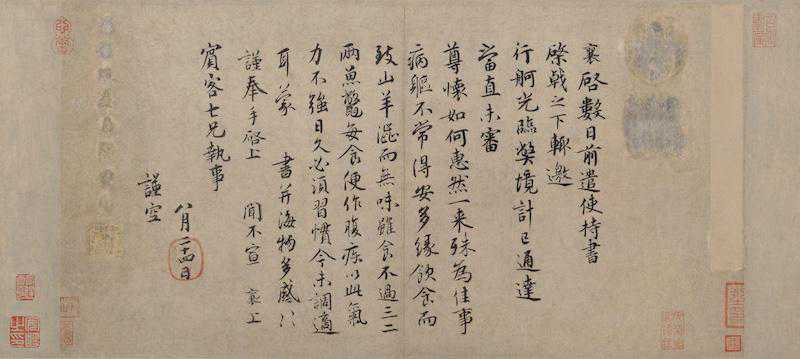 襄啓數日前遣使持書
棨戟之下輒邀
行舸光臨弊境計已通達
當直未審
尊懷如何惠然一来殊為佳事
病軀不常得安多緣飲食而
致山羊澀而無味雖食不過三二
兩魚鼈每食便作腹疾以此氣
力不強日久必須習慣今未調適
耳蒙 書并海物多感〻
謹奉手啓上 聞不宣 襄上
賓客七兄執事
八月廿四日
謹空